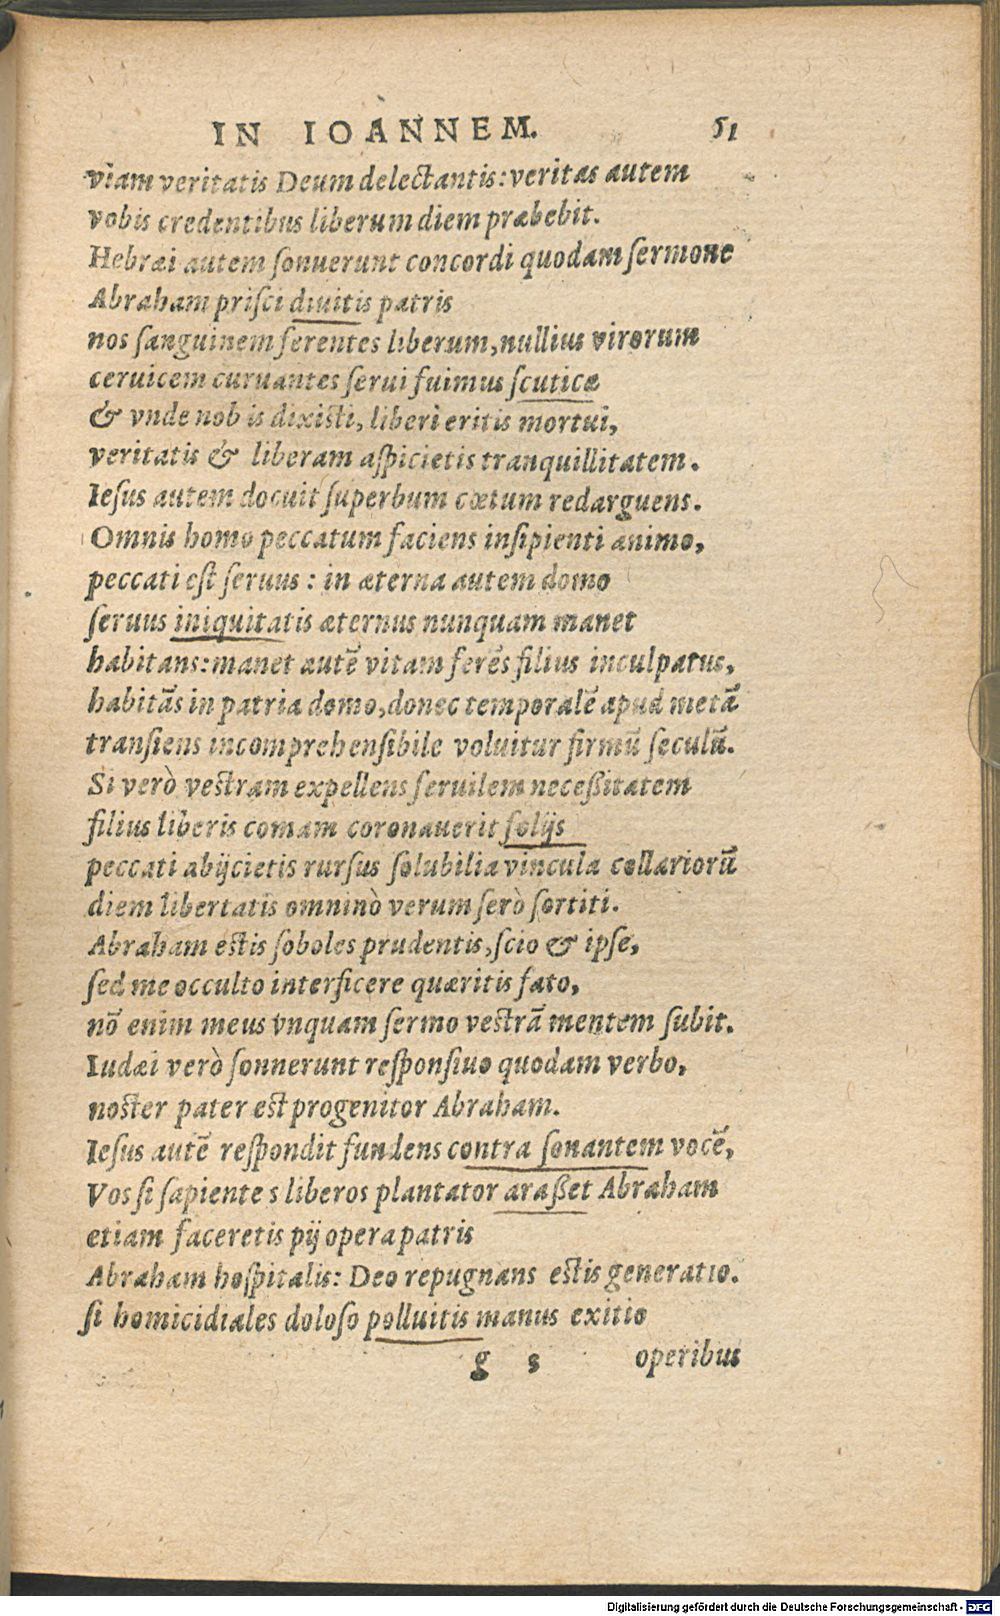 IN IOANNEM. 51
viam veritatis Deum delectantis: veritas autem
vobis credentibus liberum diem præbebit.
Hebræi autem sonuerunt concordi quodam sermone
Abraham prisci diuitis patris
nos sanguinem ferentes liberum, nullius virorum
ceruicem curuantes serui fuimus scuticæ
& vnde nob is dixisti, liberi eritis mortui,
veritatis & liberam aspicietis tranquillitatem.
Iesus autem docuit superbum cœtum redarguens.
Omnis homo peccatum faciens insipienti animo,
peccati est seruus: in æterna autem domo
seruus iniquitatis æternus nunquam manet
habitans: manet autẽ vitam ferẽs filius inculpatus,
habitãs in patria domo, donec temporalẽ apud metã
transiens incomprehensibile voluitur firmũ seculũ.
Si verò vestram expellens seruilem necessitatem
filius liberis comam coronauerit folijs
peccati abijcietis rursus solubilia vincula collariorũ
diem libertatis omninò verum serò sortiti.
Abraham estis soboles prudentis, scio & ipse,
sed me occulto interficere quæritis fato,
nõ enim meus vnquam sermo vestrã mentem subit.
Iudæi verò sonnerunt responsiuo quodam verbo,
noster pater est progenitor Abraham.
Iesus autẽ respondit fundens contra sonantem vocẽ,
Vos si sapiente s liberos plantator arasset Abraham
etiam faceretis pij opera patris
Abraham hospitalis: Deo repugnans estis generatio.
si homicidiales doloso polluitis manus exitio
g s operibus
Digitalisierung gefördert durch die Deutsche Forschungsgemeinschaft - DFG